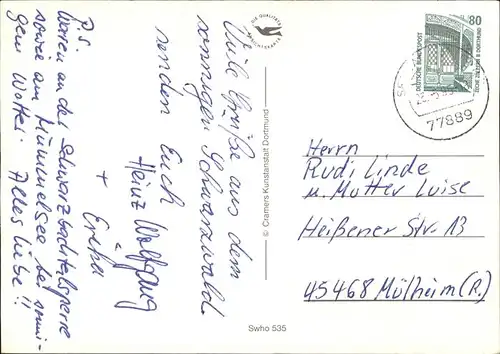 Viele Grüße aus dem
sonnigen Schwarzwald
senden Euch
Heinz Wolfgang
+ Erika
P.S.
Waren an der Schwarzbachtalsperre
sowie am Mummelsee bei sonni-
gem Wetter. Alles Liebe!!
© Cramers Kunstanstalt Dortmund
Swho 535
DEUTSCHE BUNDESPOST
80
ZECHE ZOLLERN II DORTMUND
77889
Herrn
Rudi Linde
u. Mutter Luise
Heißener Str. 13
45468 Mülheim (R.)